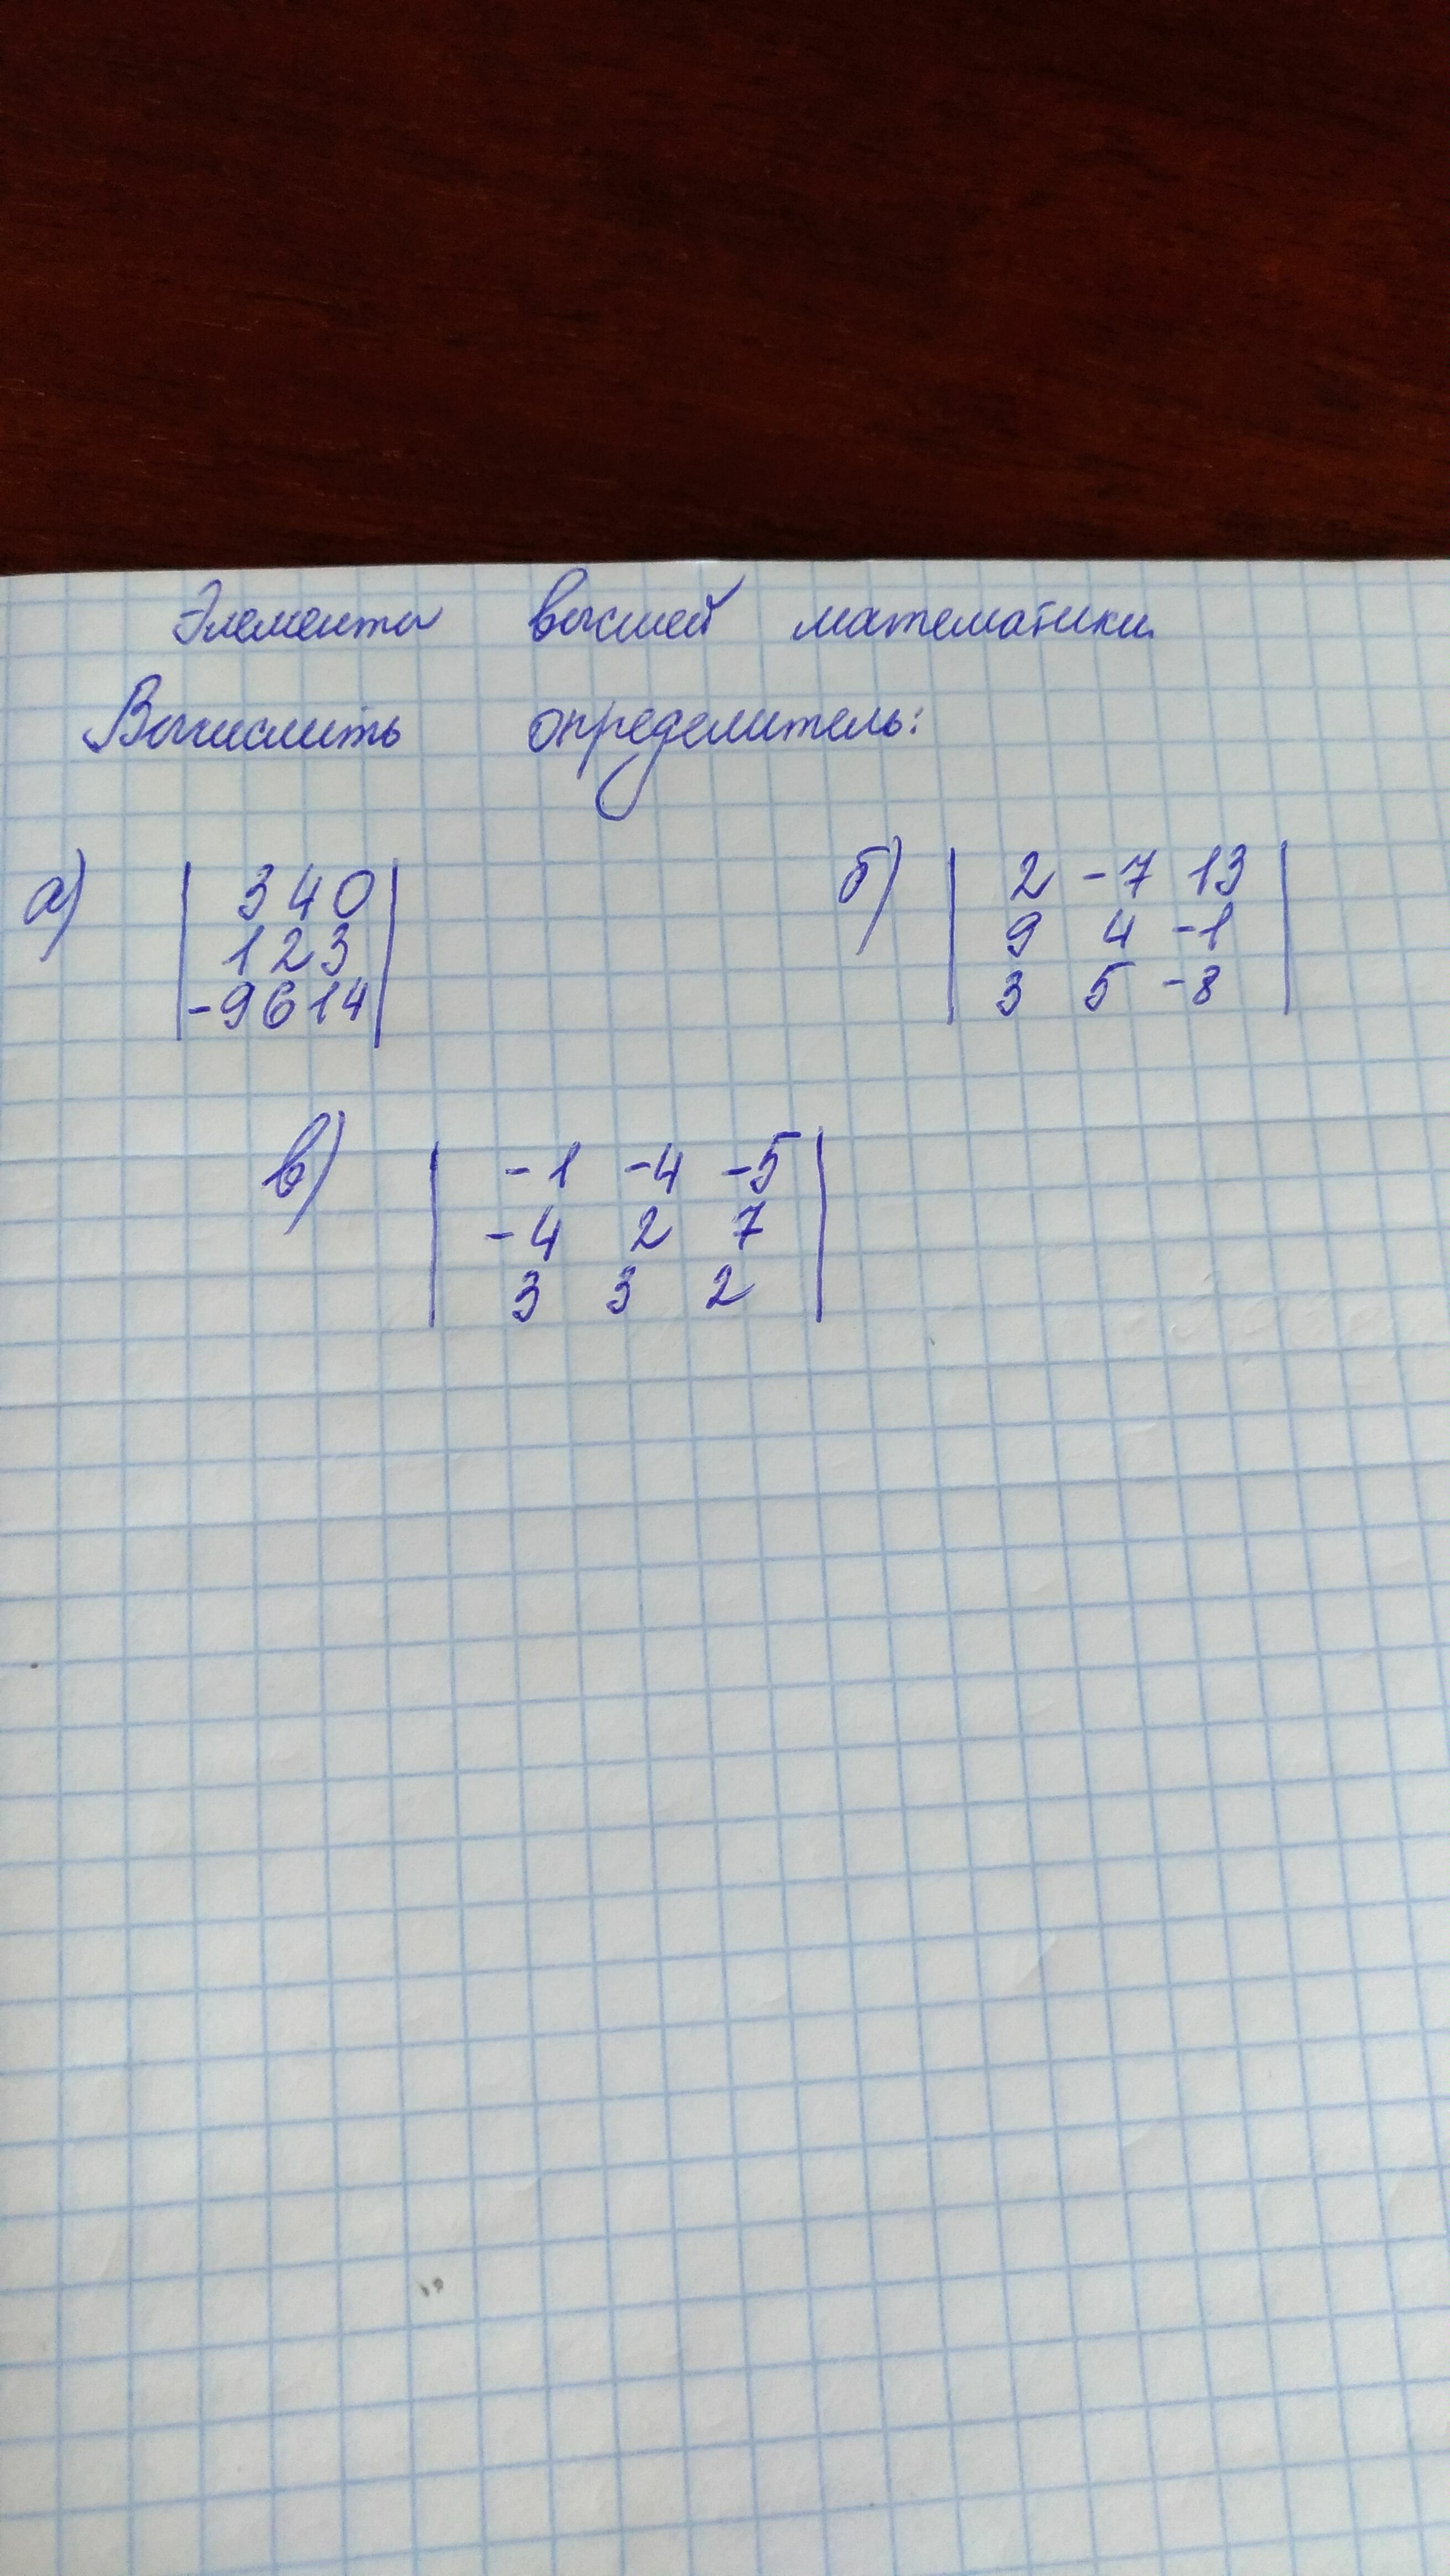 Элементы высшей математики.
Вычислить определитель:
а) | 3 4 0 |
| 1 2 3 |
| -9 6 14 |
б) | 2 -7 13 |
| 9 4 -1 |
| 3 5 -8 |
в) | -1 -4 -5 |
| -4 2 7 |
| 3 3 2 |